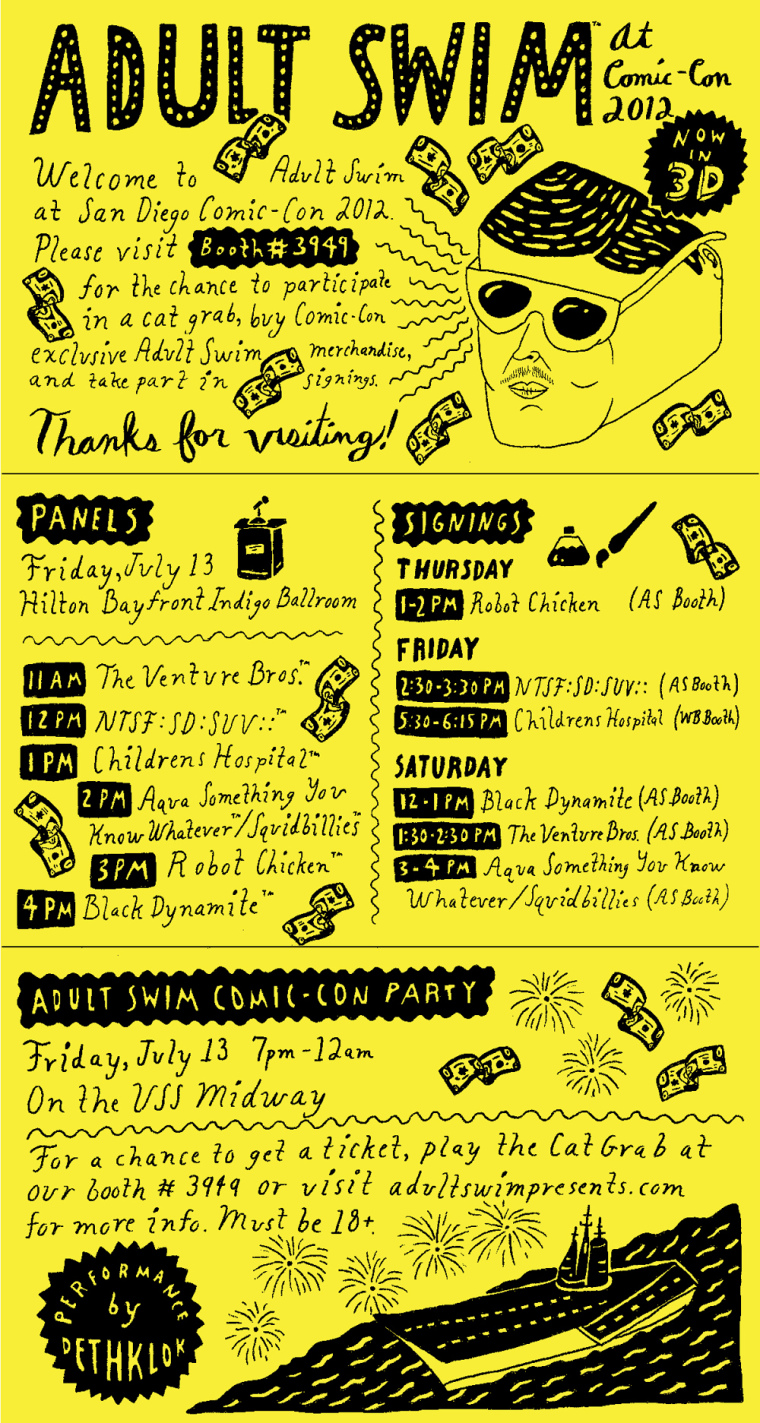 ADULT SWIM™ at
Comic-Con
2012
NOW
IN
3D
Welcome to Adult Swim
at San Diego Comic-Con 2012.
Please visit Booth # 3949
for the chance to participate
in a cat grab, buy Comic-Con
exclusive Adult Swim merchandise,
and take part in signings.
Thanks for visiting!
PANELS
Friday, July 13
Hilton Bayfront Indigo Ballroom
11 AM The Venture Bros.™
12 PM NTSF:SD:SUV::™
1 PM Childrens Hospital™
2 PM Aqua Something You
Know Whatever™/Squidbillies™
3PM Robot Chicken™
4 PM Black Dynamite™
SIGNINGS
THURSDAY
1-2 PM Robot Chicken (AS Booth)
FRIDAY
2:30-3:30 PM NTSF:SD:SUV:: (AS Booth)
5:30-6:15 PM Childrens Hospital (WB Booth)
SATURDAY
12-1 PM Black Dynamite (AS Booth)
1:30-2:30 PM The Venture Bros. (AS Booth)
3-4 PM Aqua Something You Know
Whatever/Squidbillies (AS Booth)
ADULT SWIM COMIC-CON PARTY
Friday, July 13 7pm-12am
On the USS Midway
For a chance to get a ticket, play the Cat Grab at
our booth # 3949 or visit adultswimpresents.com
for more info. Must be 18+.
PERFORMANCE
by
DETHKLOK